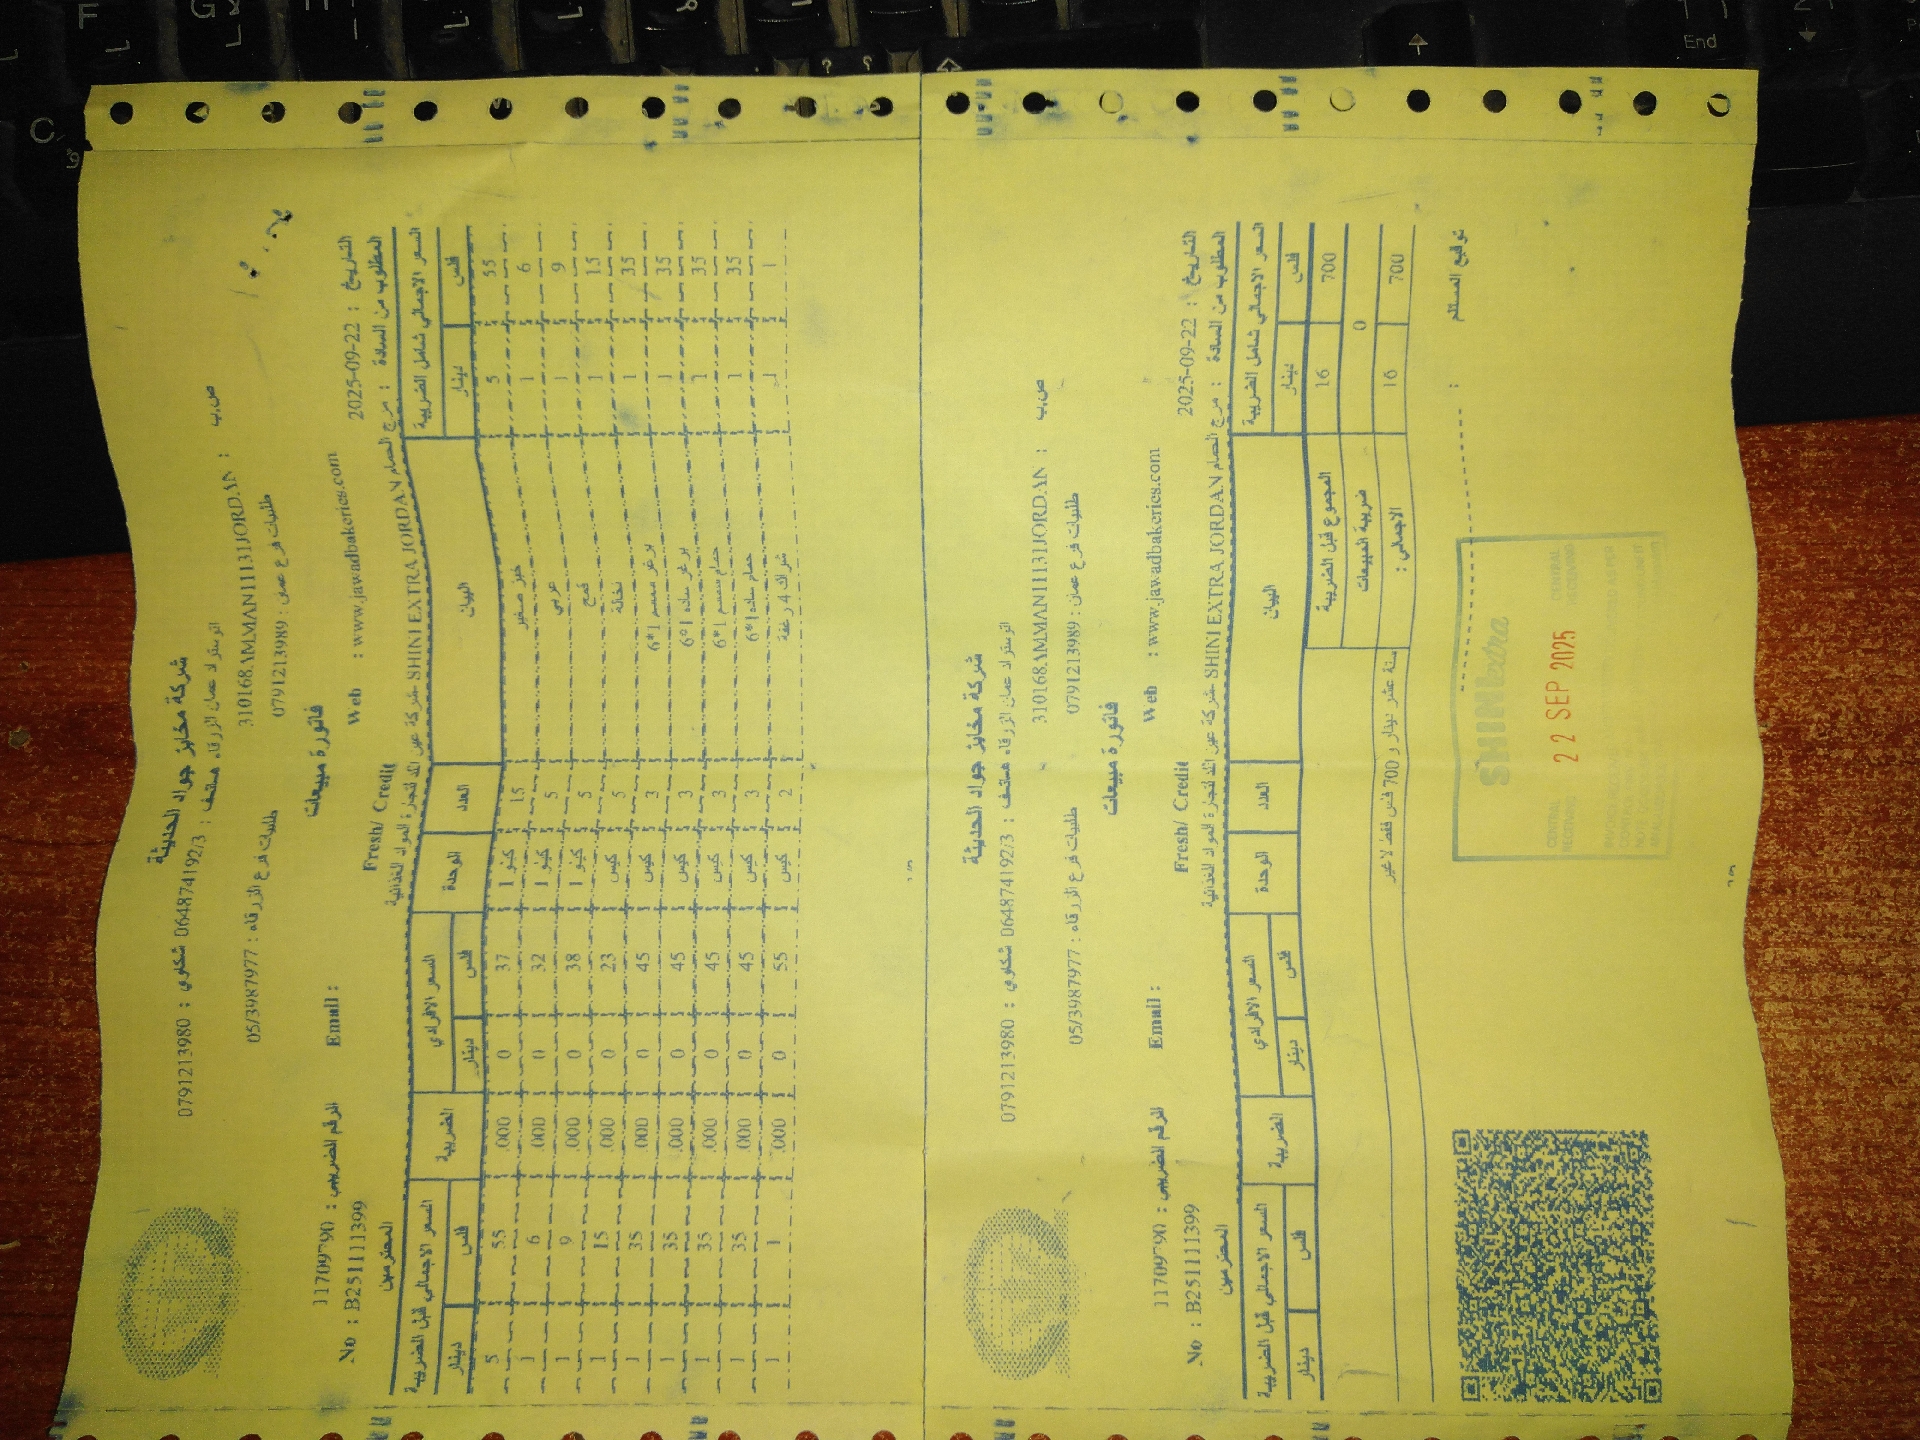 شركة مخابز جواد الحديثة
اتوستراد عمان الزرقاء هاتف : 064874192/3 شكاوي : 0791213980
ص.ب : 310168AMMAN11131JORDAN
طلبيات فرع عمان : 0791213989 طلبيات فرع الزرقاء : 05/3987977
فاتورة مبيعات
الرقم الضريبي :
التاريخ : 2025-09-22 Web : www.jawadbakeries.com Email : No : B251111399
Fresh/ Credit
المطلوب من السادة : مرج الحمام SHINI EXTRA JORDAN- المحترمين
السعر الاجمالي شامل الضريبة البيان العدد الوحدة السعر الافرادي الضريبة السعر الاجمالي قبل الضريبة
فلس دينار فلس دينار فلس دينار
55 5 خبز صغير 15 كيلو 1 37 0 .000 55 5
6 1 عربي 5 كيلو 1 32 0 .000 6 1
9 1 قمح 5 كيلو 1 38 0 .000 9 1
15 1 نخالة 5 كيس 23 0 .000 15 1
35 1 برغر سمسم 1*6 3 كيس 45 0 .000 35 1
35 1 برغر ساده 1*6 3 كيس 45 0 .000 35 1
35 1 حمام سمسم 1*6 3 كيس 45 0 .000 35 1
35 1 حمام ساده 1*6 3 كيس 45 0 .000 35 1
1 1 شراك 4 رغفة 2 كيس 55 0 .000 1 1
شركة مخابز جواد الحديثة
اتوستراد عمان الزرقاء هاتف : 064874192/3 شكاوي : 0791213980
ص.ب : 310168AMMAN11131JORDAN
طلبيات فرع عمان : 0791213989 طلبيات فرع الزرقاء : 05/3987977
فاتورة مبيعات
الرقم الضريبي :
التاريخ : 2025-09-22 Web : www.jawadbakeries.com Email : No : B251111399
Fresh/ Credit
المطلوب من السادة : مرج الحمام SHINI EXTRA JORDAN- المحترمين
السعر الاجمالي شامل الضريبة البيان العدد الوحدة السعر الافرادي الضريبة السعر الاجمالي قبل الضريبة
فلس دينار فلس دينار فلس دينار
700 16 المجموع قبل الضريبة
0 ضريبة المبيعات
700 16 الاجمالي : ستة عشر دينار و 700 فلس فقط لا غير
توقيع المستلم :
SHINI extra
22 SEP 2025